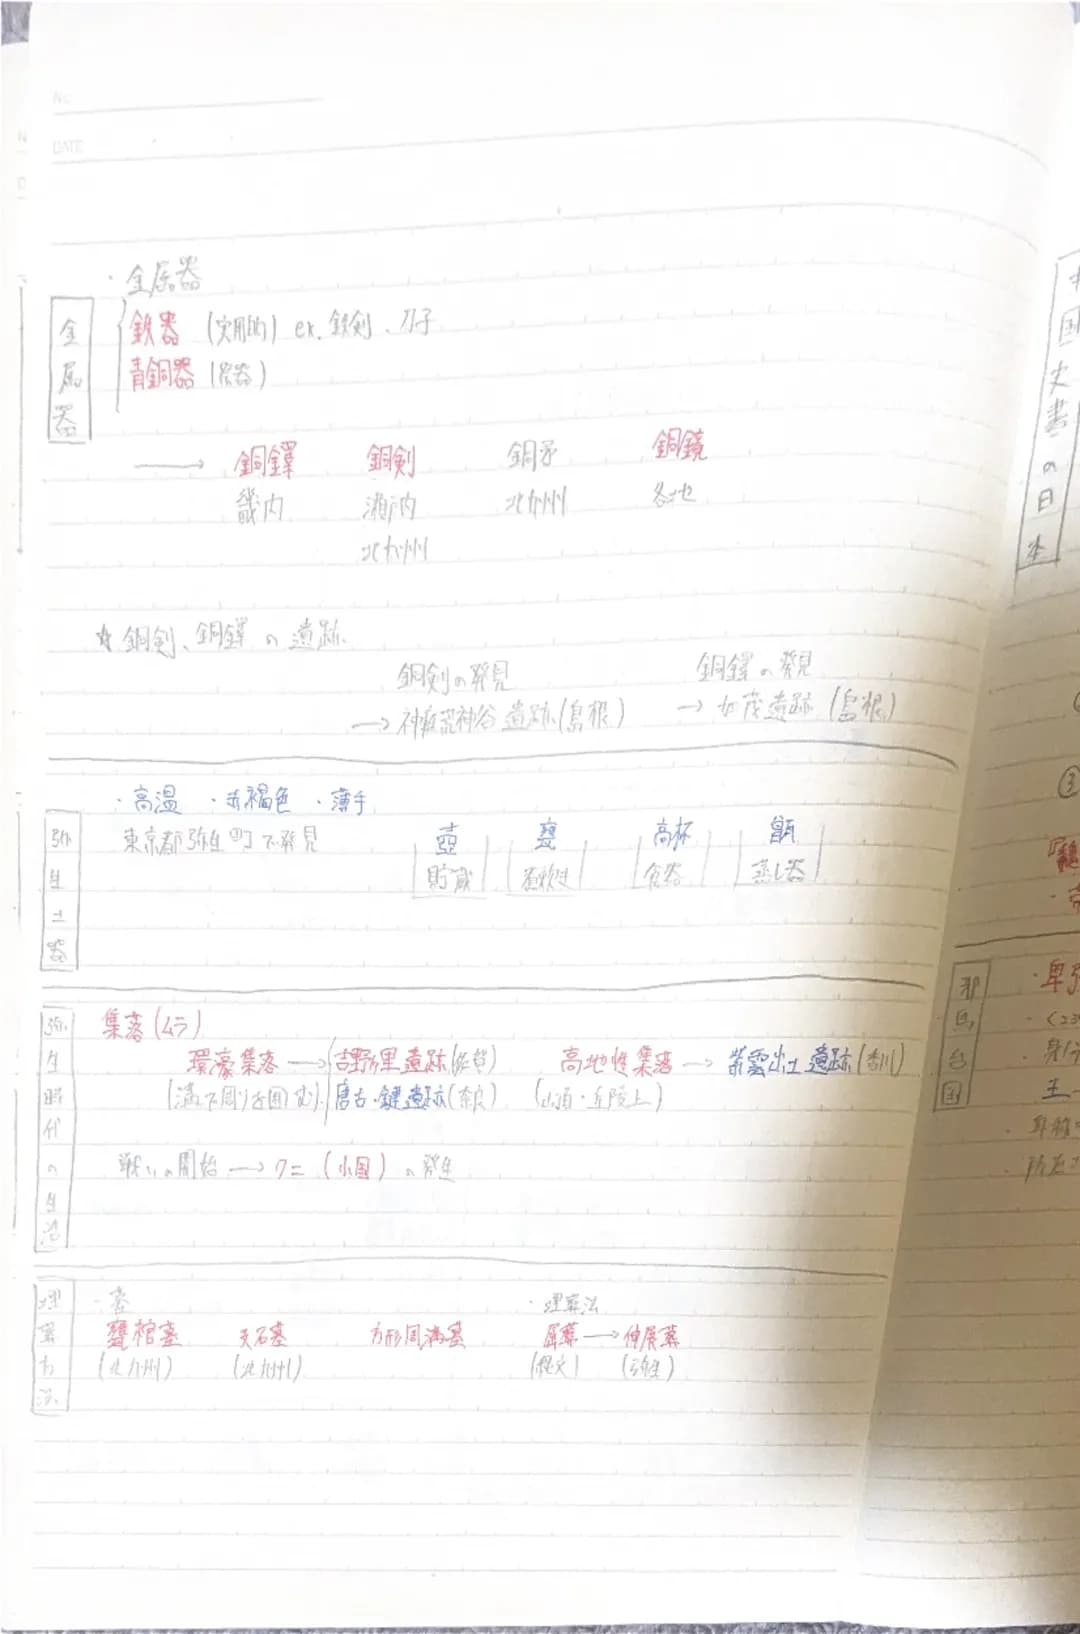 No.
DATE
金属器
・金属器
鉄器 (実用的) ex. 鉄剣、刀子
青銅器 (祭器)
→ 銅鐸 銅剣 銅矛 銅鏡
畿内 瀬内 北九州 各地
北九州
☆ 銅剣、銅鐸の遺跡
銅剣の発見 銅鐸の発見
→ 神庭荒神谷遺跡(島根) → 加茂遺跡(島根)
弥生土器
・高温 ・赤褐色 ・薄手
東京都弥生町で発見
壺 甕 高杯 甑
貯蔵 煮炊き 食器 蒸し器
弥生時代の生活
集落(ムラ)
環濠集落 → 吉野ヶ里遺跡(佐賀) 高地性集落 → 紫雲出山遺跡(香川)
(溝で周りを囲む) 唐古・鍵遺跡(奈良) (山頂・丘陵上)
戦いの開始 → クニ(小国)の発生
埋葬方法
・墓 ・埋葬法
甕棺墓 支石墓 方形周溝墓 屈葬 → 伸展葬
(北九州) (北九州) (縄文) (弥生)
中国史書の日本
③
邪馬台国